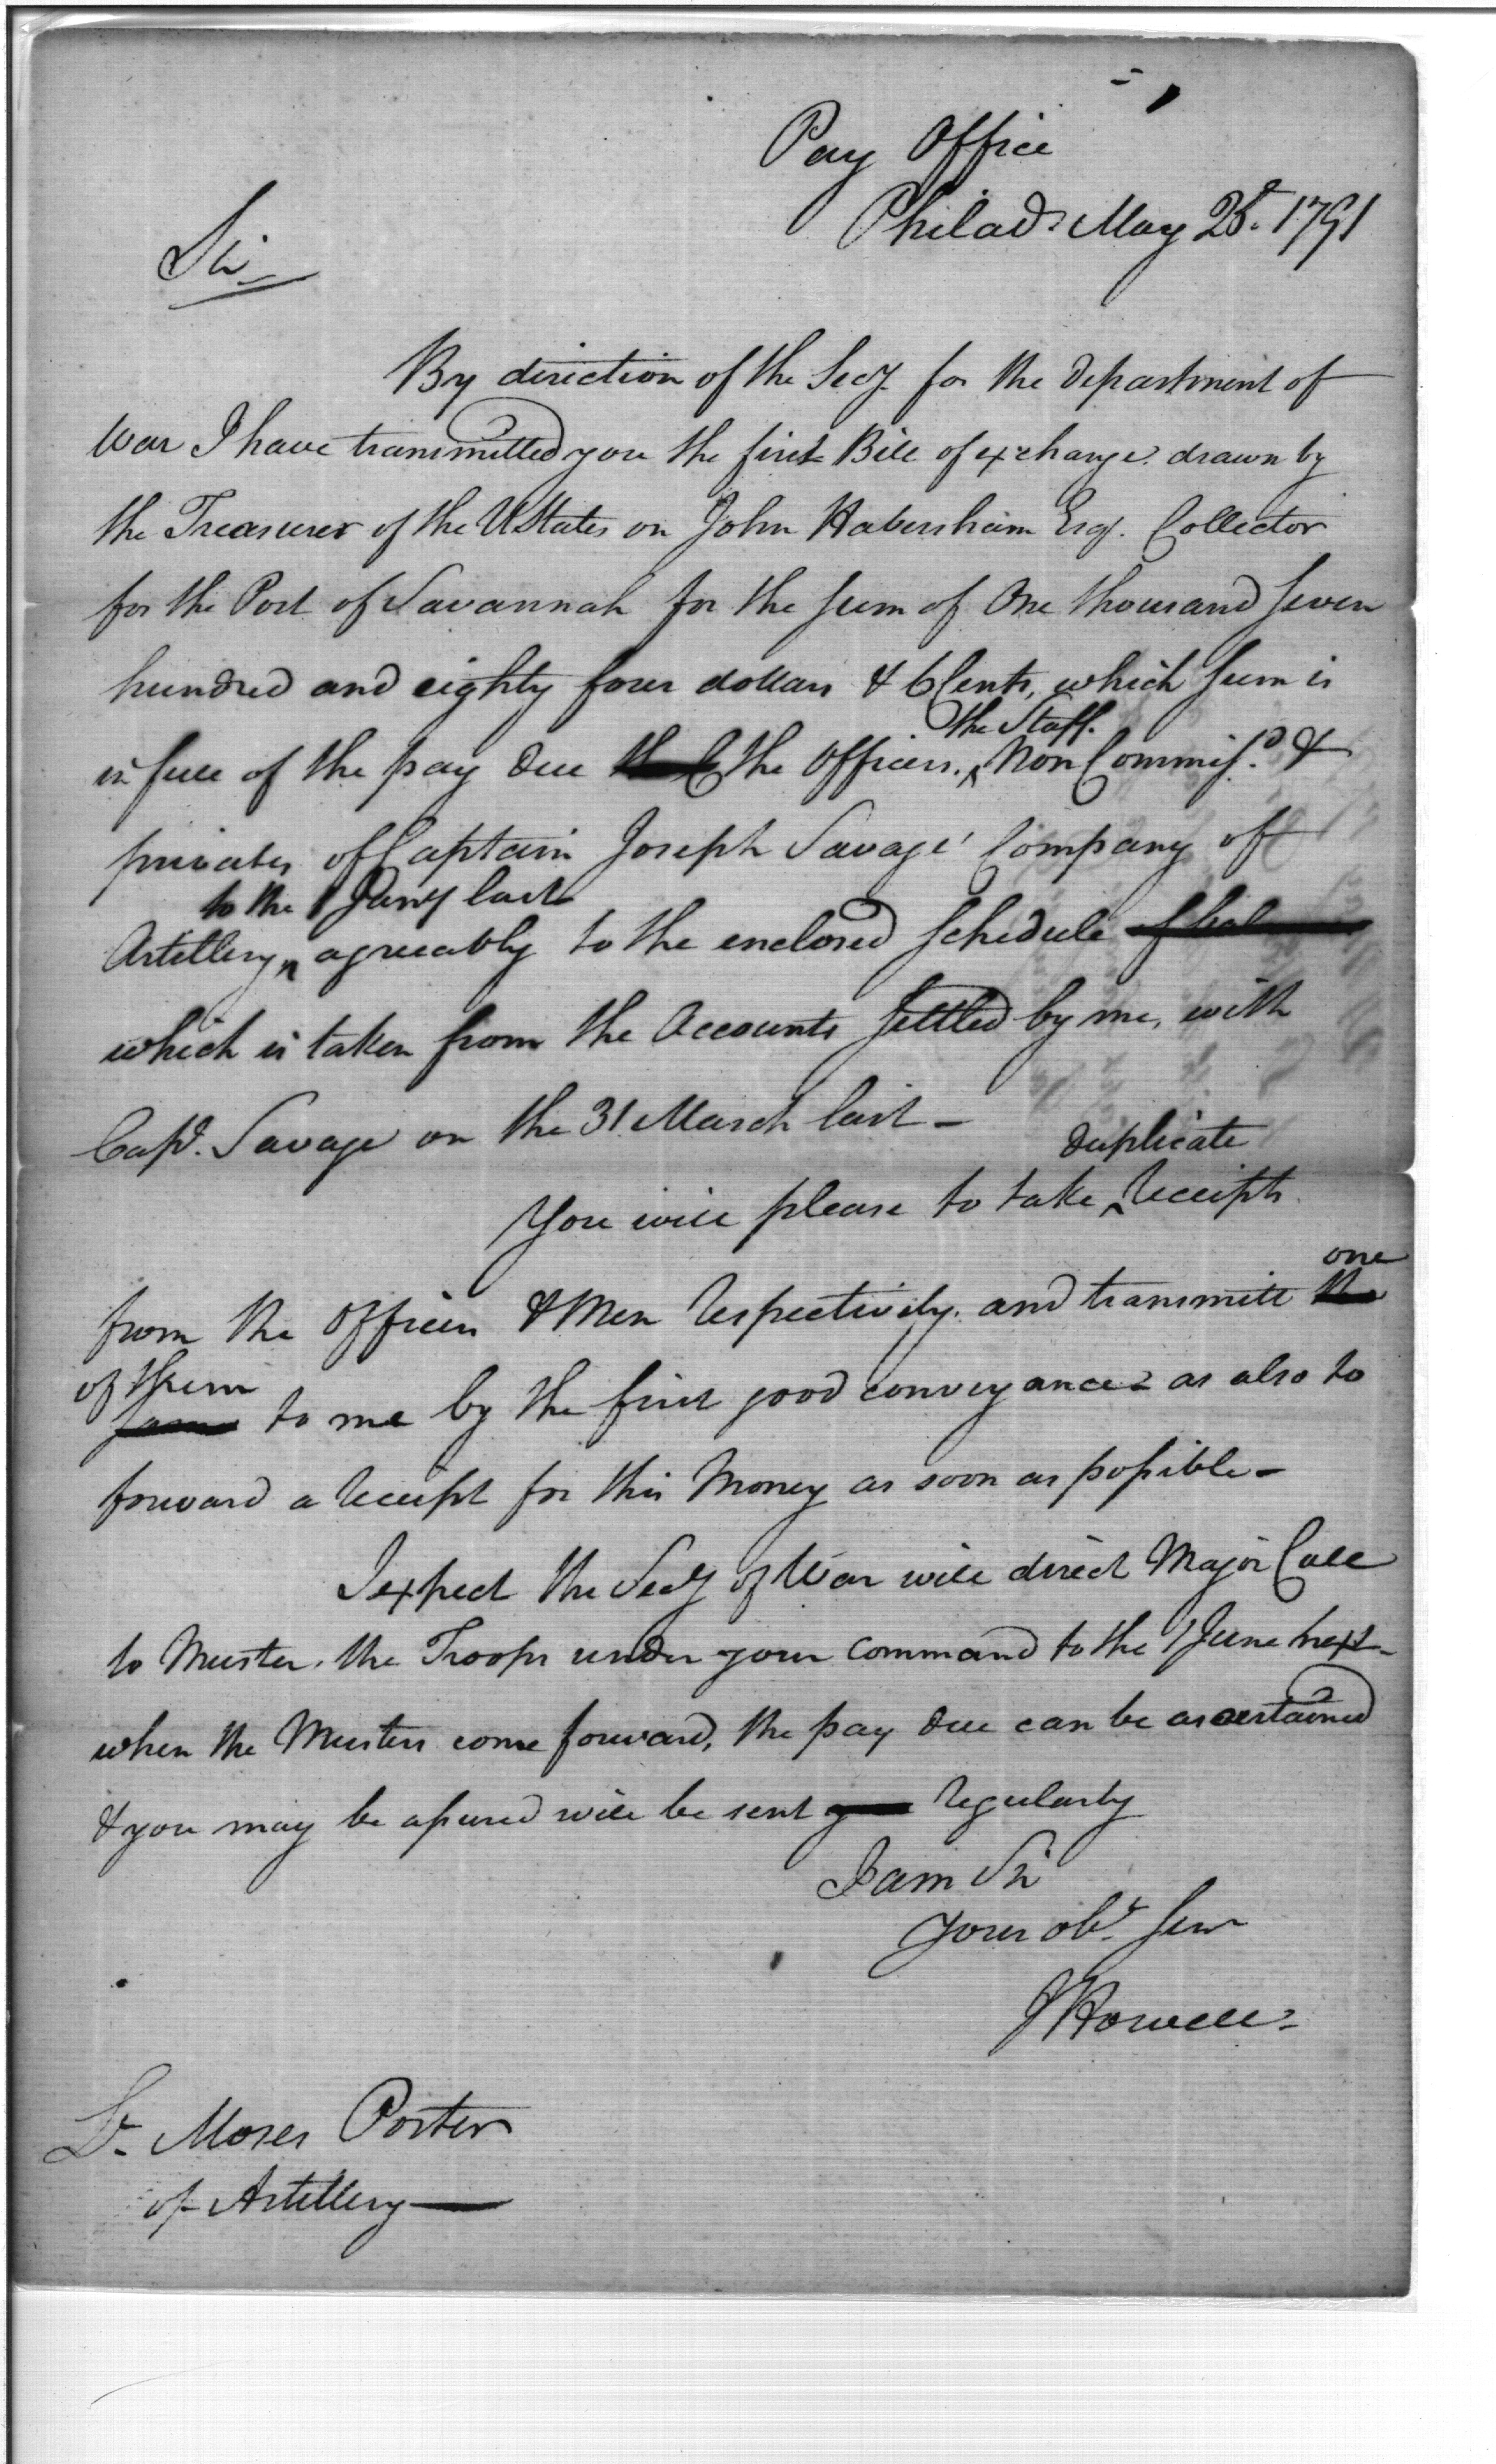 Pay Office
Philad.ª May 28.th 1791
Sir
By direction of the Secy. for the Department of
War I have transmitted you the first Bill of exchange drawn by
the Treasurer of the UStates on John Habersham Esqr. Collector
for the Port of Savannah for the sum of One thousand seven
hundred and eighty four dollars & 6 Cents, which sum is
the Staff.
in full of the pay due the Officers. ^ Non Commiss.d &
privates of Captain Joseph Savage' Company of
to the 1 Jany last
Artillery ^ agreeably to the enclosed schedule
which is taken from the Accounts settled by me, with
Capt. Savage on the 31 March last—
duplicate
You will please to take ^ receipts
one
from the Officers & Men respectively. and transmitt the
of them
same to me by the first good conveyance as also to
forward a receipt for this Money as soon as possible—
I expect the Secy of War will direct Major Call
to Muster. the Troops under your command to the 1 June next—
when the Musters come forward, the pay due can be ascertained
& you may be assured will be sent regularly
I am Sir
your obt. Serv
J Howell
Lt. Moses Porter
of Artillery—